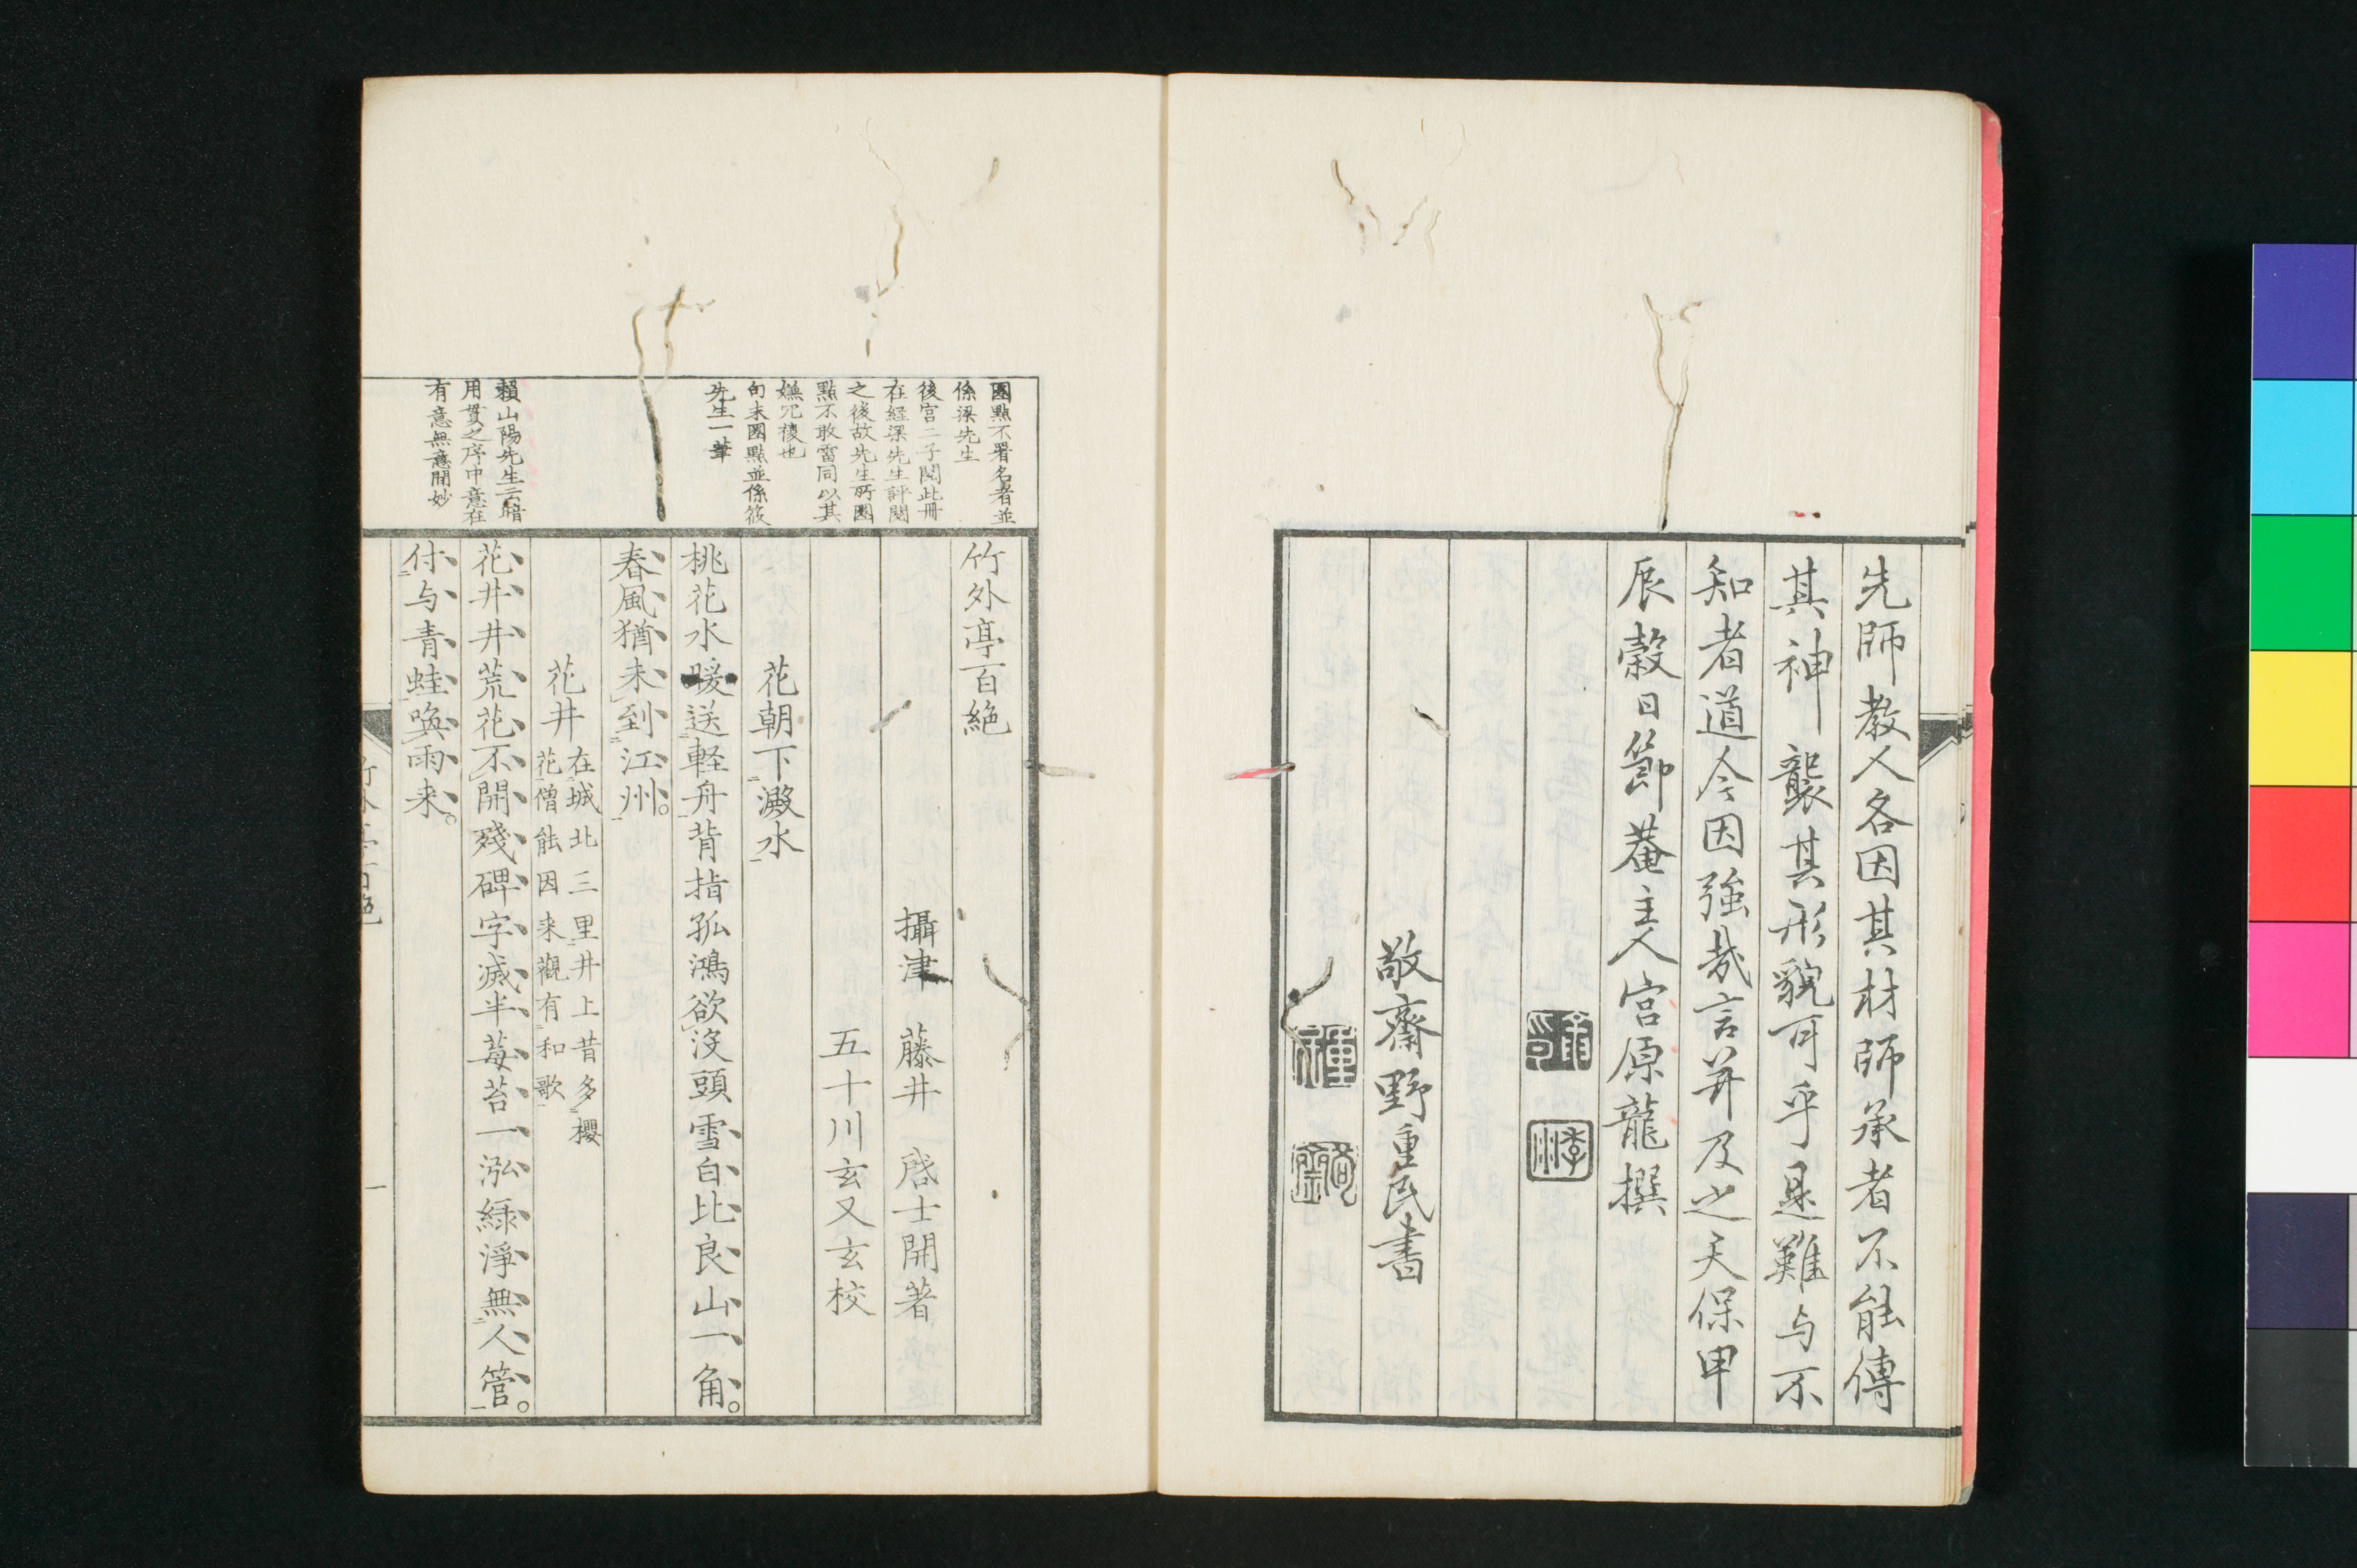 先師教人各因其材師承者不能傳
其神襲其形貌可乎是難与不
知者道今因強哉言并及之天保甲
辰穀日節菴主人宮原龍撰
敬齋野重民書
圈點不署名者並
係梁先生
後宮二子閲此冊
在經梁先生評閲
之後故先生所圈
點不敢雷同以其
嫌冗複也
句末圈點並係筱
先生一筆
賴山陽先生云暗
用貫之序中意在
有意無意間妙
竹外亭百絶
攝津 藤井 啓士開著
五十川玄又玄校
花朝下澱水
桃花水暖送軽舟背指孤鴻欲没頭雪白比良山一角
春風猶未到江州
花井 在城北三里井上昔多櫻
花僧能因来觀有和歌
花井井荒花不開殘碑字滅半莓苔一泓緑淨無人管
付与青蛙喚雨来
一